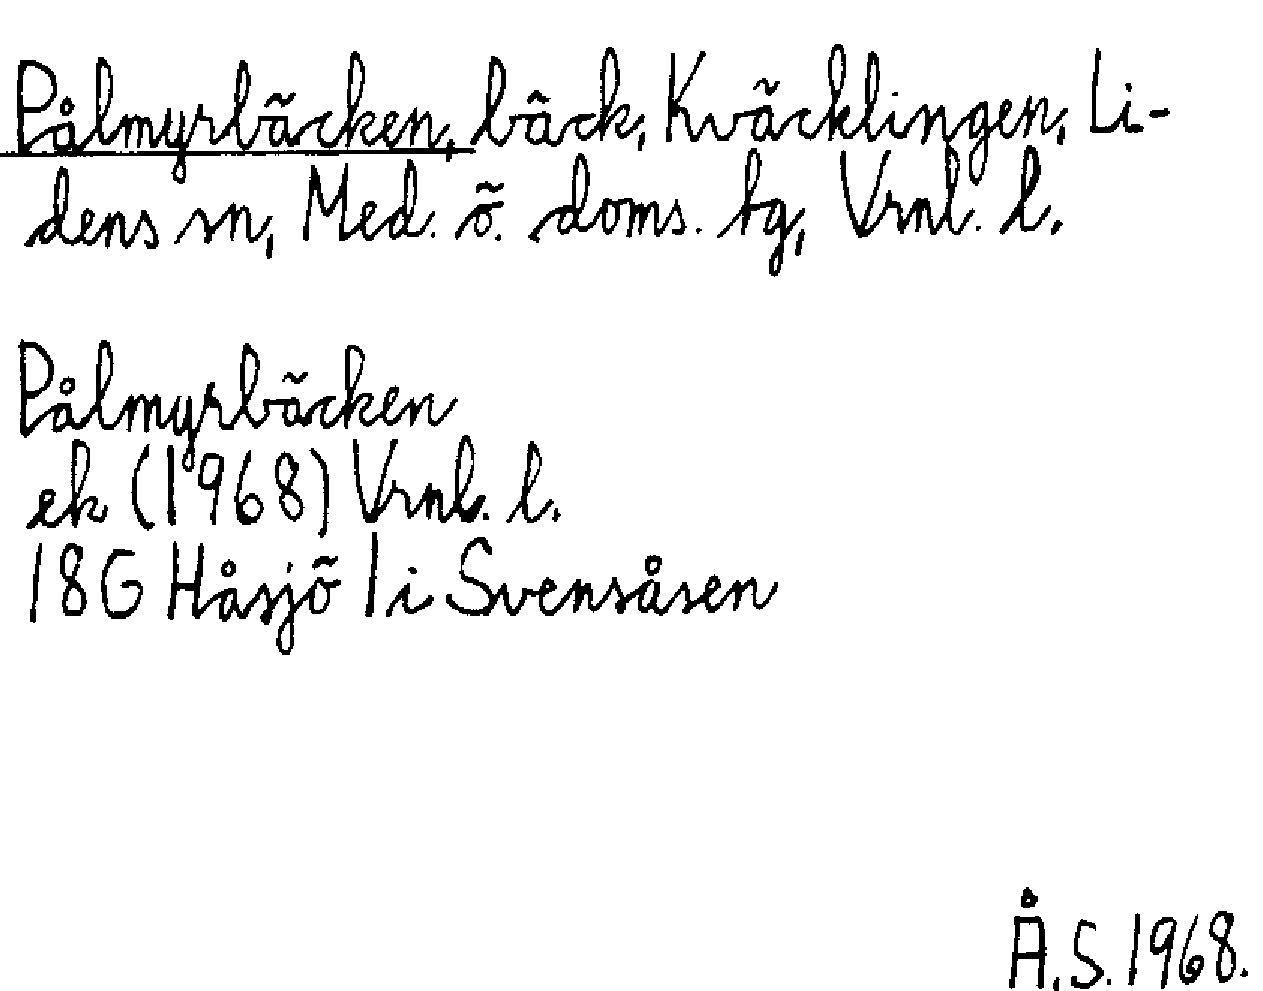 Pålmyrbäcken, bäck, Kväcklingen, Li-
dens sn, Med. ö. doms. hg, Vrnl. l.
Pålmyrbäcken
ek (1968) Vrnl. l.
18G Håsjö 1 i Svensåsen
Å.S. 1968.